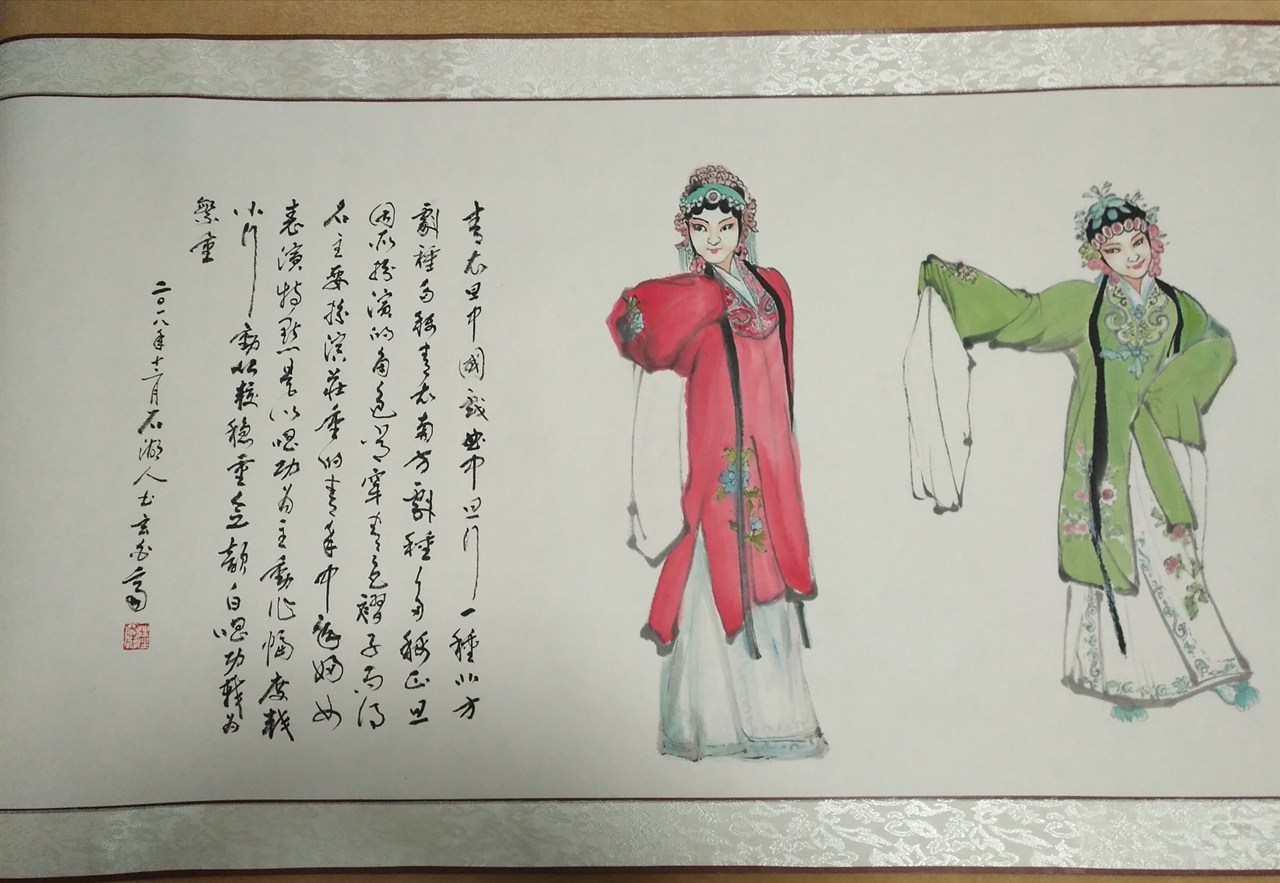 青衣旦中國戏曲中旦行一種北方
劇種多称青衣南方劇種多称正旦
因所扮演的角色常穿青色褶子而得
名主要扮演莊重的青年中年婦女
表演特點是以唱功为主動作幅度較
小行動比較穩重念韻白唱功較为
繁重
二〇一八年十二月石湖人书